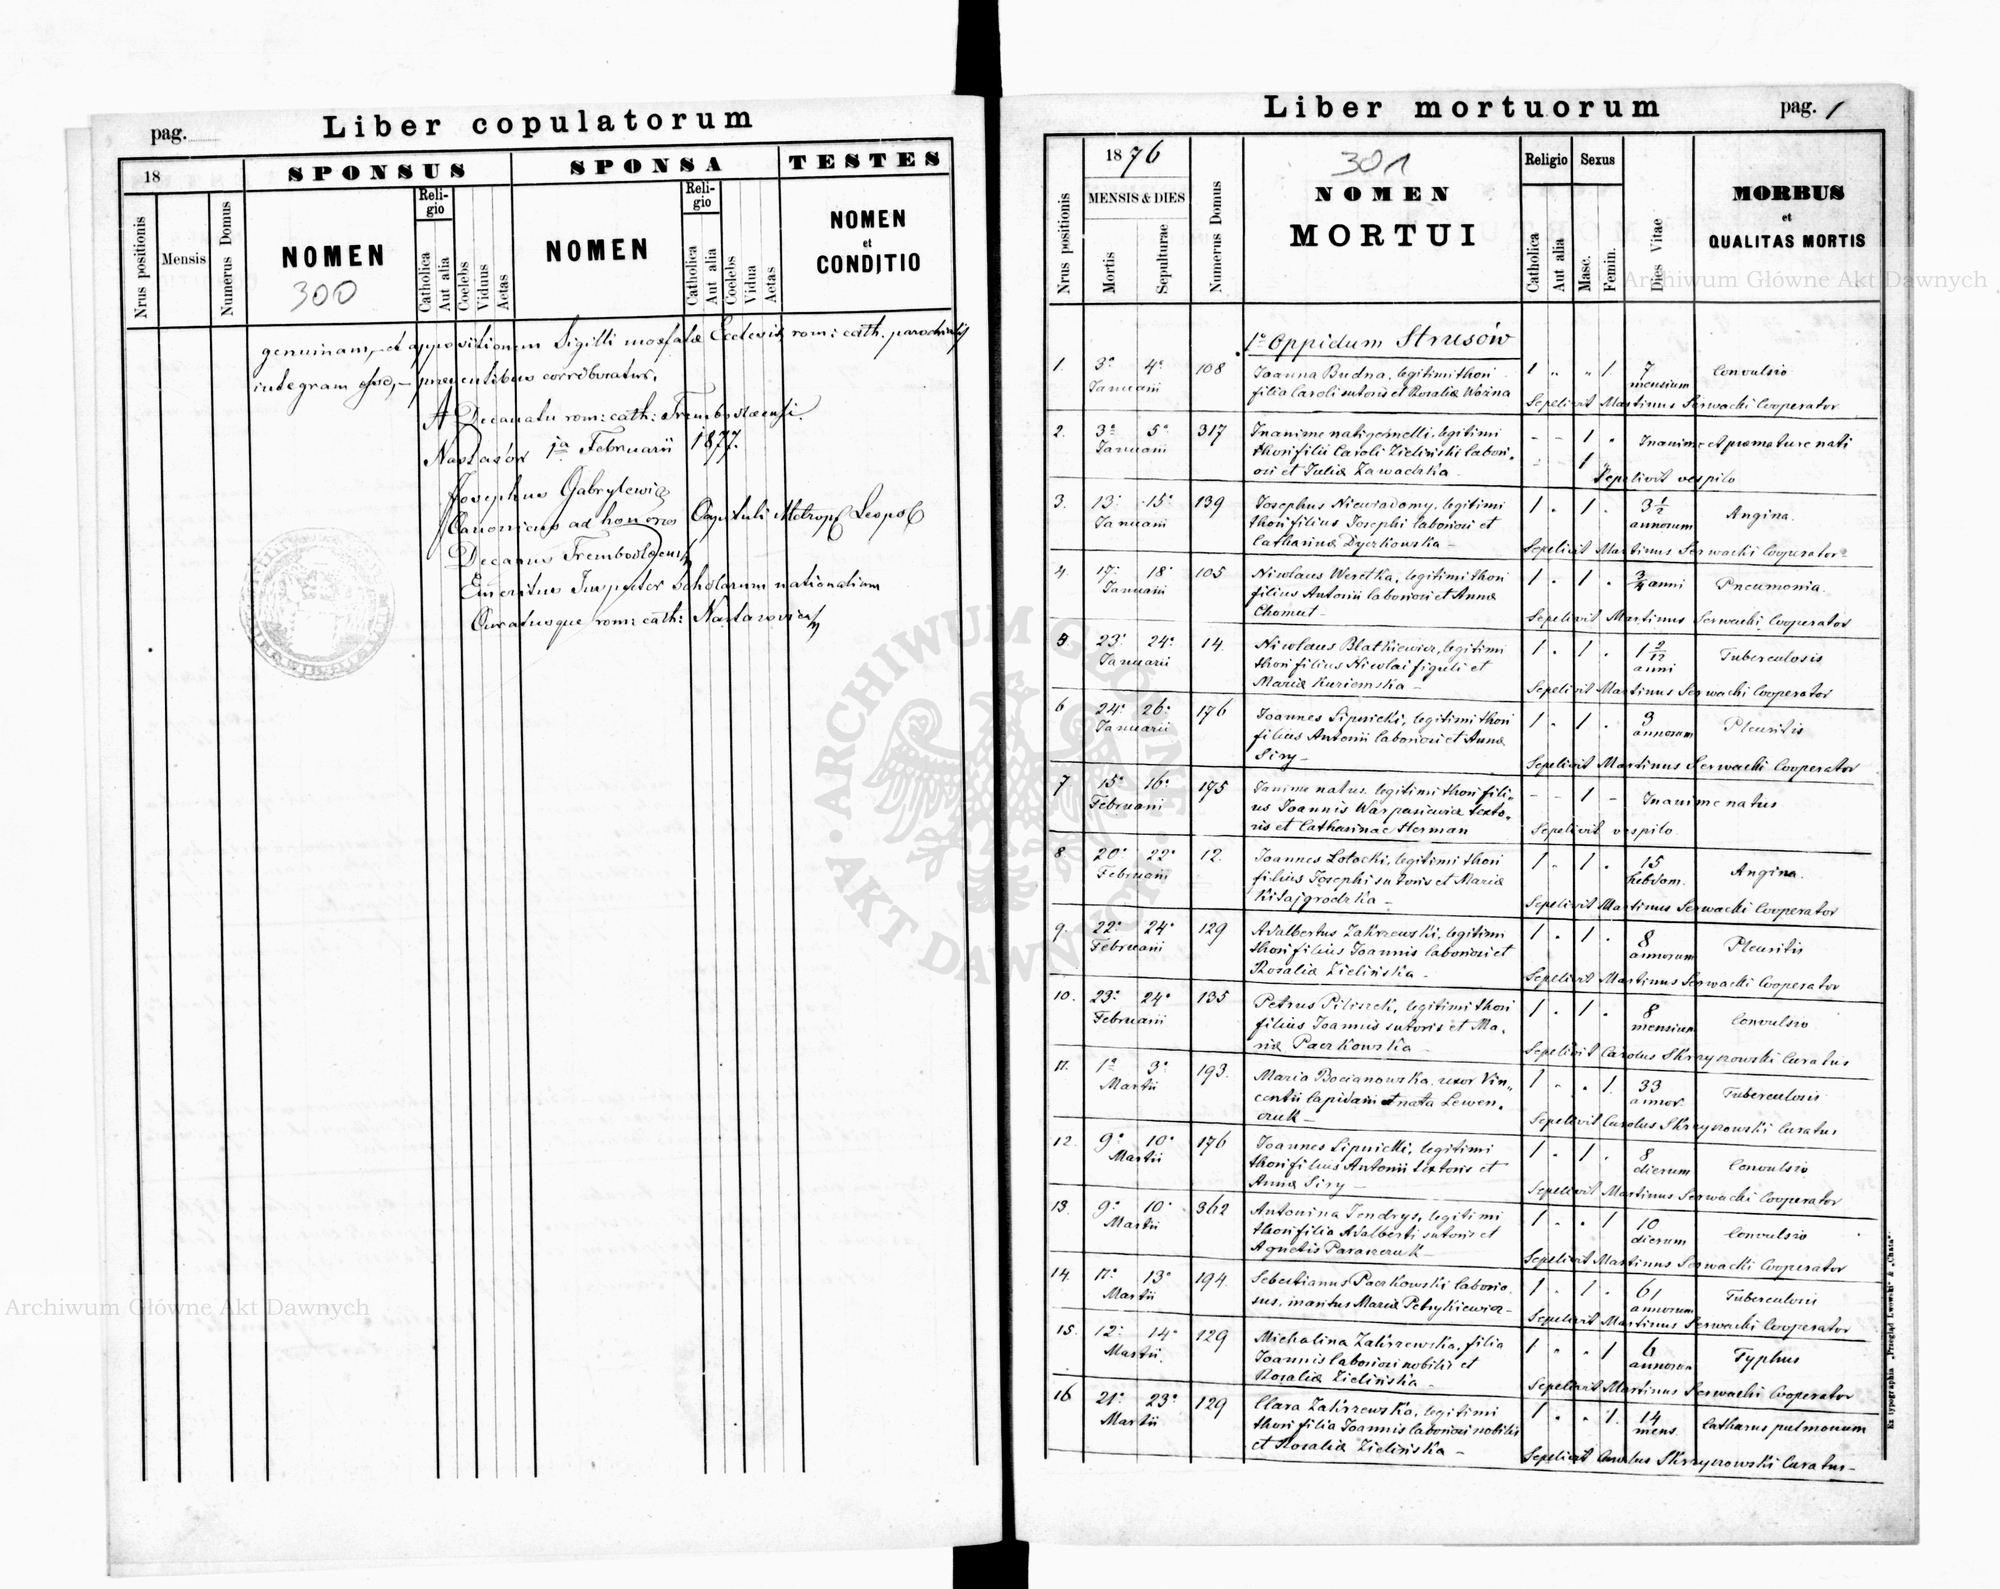 pag.
Liber copulatorum
18
SPONSUS
SPONSA
TESTES
Nrus positionis
Mensis
Numerus Domus
NOMEN
300
Religio
Catholica
Aut alia
Coelebs
Viduus
Aetas
NOMEN
Religio
Catholica
Aut alia
Coelebs
Vidua
Aetas
NOMEN
et
CONDITIO
genuinam, et appositionem Sigilli Ecclesiæ rom: cath. parochialis
integram esse, praesentibus corroboratur.
A Decanatu rom: cath: Trembovlaensi.
1a Februarii 1877.
Josephus Gabrylewicz
Canonicus ad honores Capituli Metrop Leopol
Decanus Trembovlaens
Emeritus Inspector Scholarum nationalium
Curatusque rom: cath:
Liber mortuorum
pag. 1
Nrus positionis
1876
MENSIS & DIES
Mortis
Sepulturae
Numerus Domus
301
NOMEN
MORTUI
Religio
Catholica
Aut alia
Sexus
Masc.
Femin.
Dies Vitae
MORBUS
et
QUALITAS MORTIS
1o Oppidum Strusów
1. 3a 4a 108 Joanna Budna, legitimi thori 1 " " 1. 7 Convulsio
Januarii filia Caroli sutoris et Rosaliæ Wozna mensium
Sepelivit Martinus Serwacki Cooperator
2. 3a 5a 317 Inanime nati gemelli, legitimi - - 1 " Inanime et premature nati
Januarii thori filii Caroli Zieliński labori- - - 1 "
osi et Juliæ Zawadzka - Sepelivit vespilo
3. 13a 15a 139 Josephus Niewiadomy, legitimi 1 . 1 . 3 1/2 Angina.
Januarii thori filius Josephi laboriosi et annorum
Catharinæ Dyczkowska - Sepelivit Martinus Serwacki Cooperator
4. 17a 18a 105 Nicolaus Weretka, legitimi thori 1 . 1 . 3/4 anni Pneumonia.
Januarii filius Antonii laboriosi et Annæ
Chomut - Sepelivit Martinus Serwacki Cooperator
5 23a 24a 14. Nicolaus Blatkiewicz, legitimi 1 . 1 . 1 2/12 Tuberculosis
Januarii thori filius Nicolai figuli et anni
Mariæ Kuziemska - Sepelivit Martinus Serwacki Cooperator
6 24a 26a 176 Joannes Lipnicki, legitimi thori 1 . 1 . 3 Pleuritis
Januarii filius Antonii laboriosi et Annæ annorum
Siry - Sepelivit Martinus Serwacki Cooperator
7 15a 16a 175 Janime natus, legitimi thori fili- - - 1 - Inanime natus
Februarii us Joannis Warpasiewicz texto-
ris et Catharinae Herman Sepelivit vespilo.
8. 20a 22a 12. Joannes Lotocki, legitimi thori 1 . 1 . 15 Angina.
Februarii filius Josephi sutoris et Mariæ hebdom.
Kitajgrodzka - Sepelivit Martinus Serwacki Cooperator
9. 22a 24a 129 Adalbertus Zakrzewski, legitimi 1 . 1 . 8 Pleuritis
Februarii thori filius Joannis laboriosi et annorum
Rosaliæ Zielińska - Sepelivit Martinus Serwacki Cooperator
10. 23a 24a 135 Petrus Piliszek, legitimi thori 1 . 1 . 8 Convulsio
Februarii filius Joannis sutoris et Ma- mensium
riæ Paczkowska - Sepelivit Carolus Skrzyszowski Curatus
11. 1a 3a 193. Maria Bocianowska, uxor Vin- 1 " " 1. 33 Tuberculosis
Martii centii lapidarii et nata Lewen- annor.
czuk - Sepelivit Carolus Skrzyszowski Curatus
12. 9a 10a 176 Joannes Lipnicki, legitimi 1 . 1 . 8 Convulsio
Martii thori filius Antonii textoris et dierum
Annæ Siry - Sepelivit Martinus Serwacki Cooperator
13. 9a 10a 362 Antonina Jendrys, legitimi 1 . " 1 10 Convulsio
Martii thori filia Adalberti sutoris et dierum
Agnetis Paraszczuk - Sepelivit Martinus Serwacki Cooperator
14. 11a 13a 194. Sebastianus Paczkowski laborio- 1 . 1 . 61 Tuberculosis
Martii sus, maritus Mariæ Petrykiewicz - annorum
Sepelivit Martinus Serwacki Cooperator
15. 12a 14a 129 Michalina Zakrzewska, filia 1 " " 1 6 Typhus
Martii. Joannis laboriosi nobilis et annorum
Rosaliæ Zielińska - Sepelivit Martinus Serwacki Cooperator
16 21a 23a 129 Clara Zakrzewska, legitimi 1 . " 1. 14 Catharus pulmonum
Martii thori filia Joannis laboriosi nobilis mens.
et Rosaliæ Zielińska - Sepelivit Carolus Skrzyszowski Curatus -
Ex typographia „Przegląd Lwowski" & „Chata".
ARCHIWUM GŁÓWNE AKT DAWNYCH
Archiwum Główne Akt Dawnych
Archiwum Główne Akt Dawnych